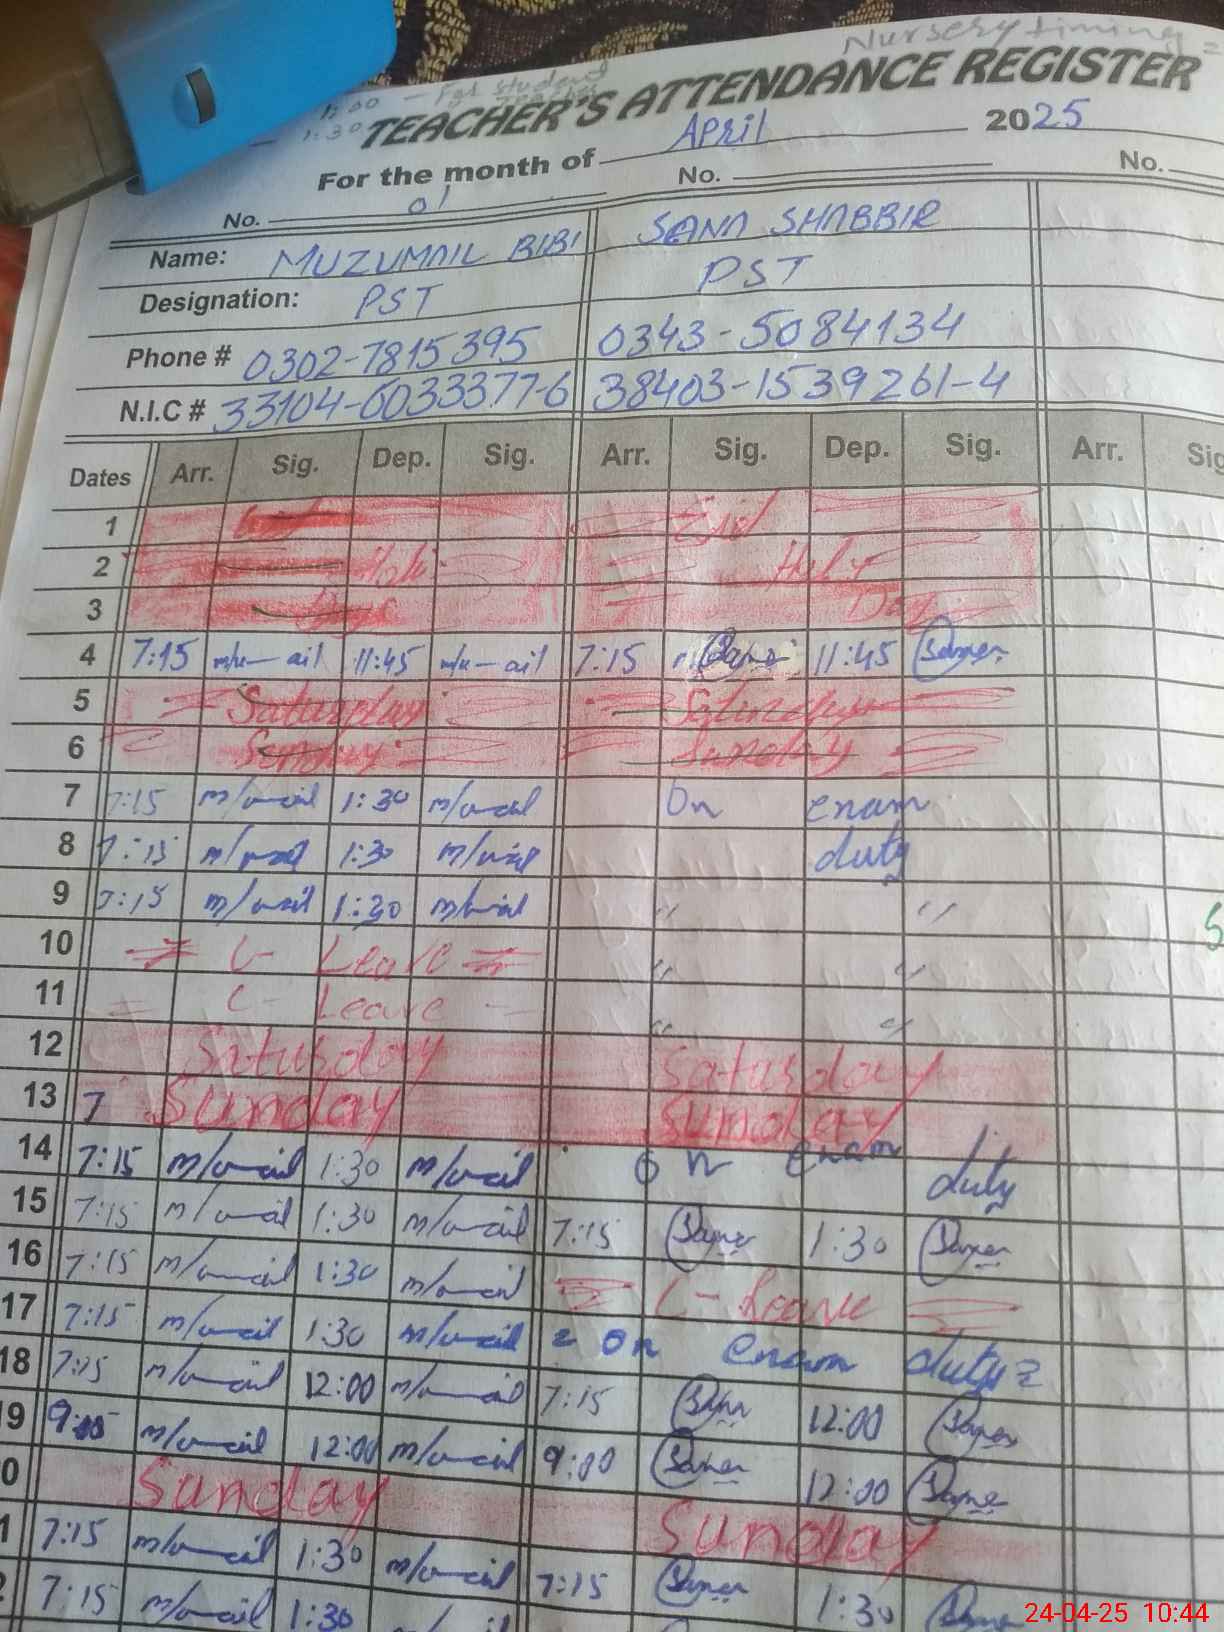 Nursery timing =
1:00 - For student
1:30
TEACHER'S ATTENDANCE REGISTER
For the month of April 2025
No. 01 No. No.
Name: MUZUMAIL BIBI SANA SHABBIR
Designation: PST PST
Phone # 0302-7815395 0343-5084134
N.I.C # 33104-6033377-6 38403-1539261-4
Dates Arr. Sig. Dep. Sig. Arr. Sig. Dep. Sig. Arr. Sig
1 Eid
2 Holy
3 Days Day
4 7:15 m/u-ail 11:45 m/u-ail 7:15 Sana 11:45 Sana
5 Saturday Saturday
6 Sunday Sunday
7 7:15 m/u-ail 1:30 m/u-ail On exam
8 7:15 m/u-ail 1:30 m/u-ail duty
9 7:15 m/u-ail 1:30 m/u-ail " "
10 C- Leave " "
11 C- Leave " "
12 Saturday Saturday
13 7 Sunday Sunday
14 7:15 m/u-ail 1:30 m/u-ail on exam duty
15 7:15 m/u-ail 1:30 m/u-ail 7:15 Sana 1:30 Sana
16 7:15 m/u-ail 1:30 m/u-ail C- Leave
17 7:15 m/u-ail 1:30 m/u-ail = on exam duty =
18 7:15 m/u-ail 12:00 m/u-ail 7:15 Sana 12:00 Sana
19 9:00 m/u-ail 12:00 m/u-ail 9:00 Sana 12:00 Sana
0 Sunday Sunday
1 7:15 m/u-ail 1:30 m/u-ail 7:15 Sana 1:30 Sana
2 7:15 m/u-ail 1:30
24-04-25 10:44